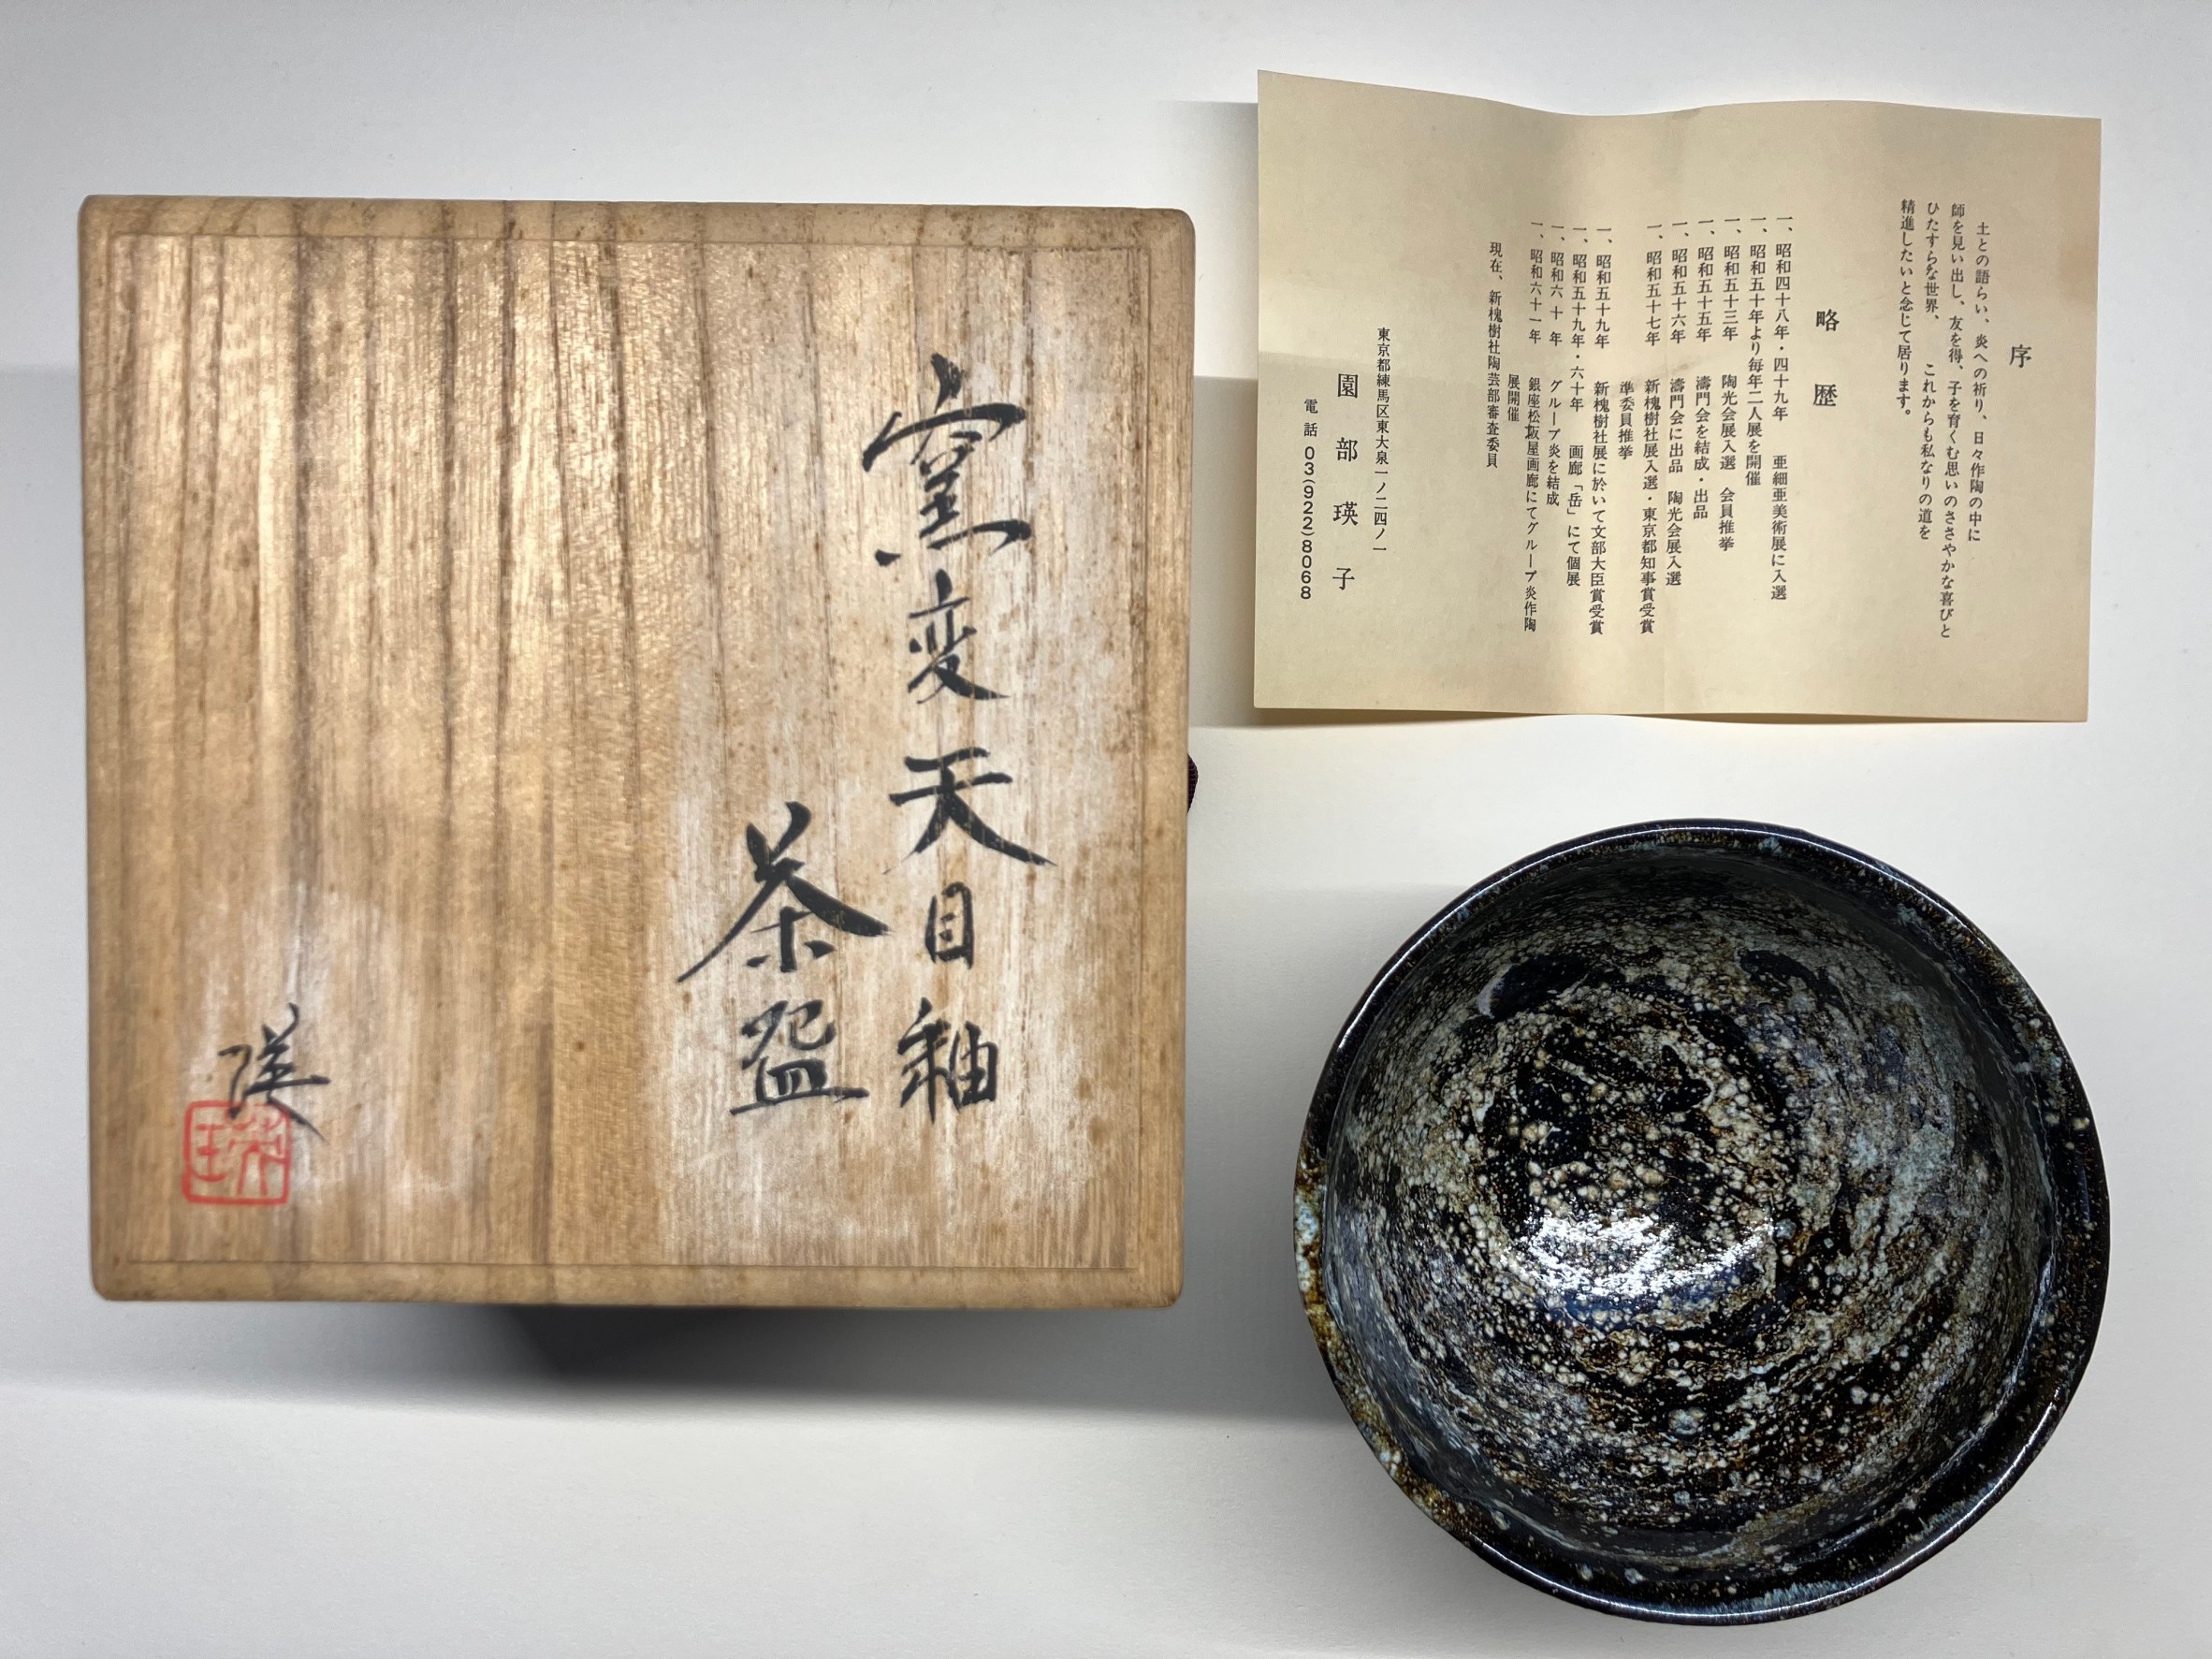 窯変天目釉
茶盌
瑛
瑛
序
土との語らい、炎への祈り、日々作陶の中に
師を見い出し、友を得、子を育くむ思いのささやかな喜びと
ひたすらな世界、これからも私なりの道を
精進したいと念じて居ります。
略歴
一、昭和四十八年・四十九年 亜細亜美術展に入選
一、昭和五十年より毎年二人展を開催
一、昭和五十三年 陶光会展入選 会員推挙
一、昭和五十五年 濤門会を結成・出品
一、昭和五十六年 濤門会に出品 陶光会展入選
一、昭和五十七年 新槐樹社展入選・東京都知事賞受賞
準委員推挙
一、昭和五十九年 新槐樹社展に於いて文部大臣賞受賞
一、昭和五十九年・六十年 画廊「岳」にて個展
一、昭和六十年 グループ炎を結成
一、昭和六十一年 銀座松阪屋画廊にてグループ炎作陶
展開催
現在、新槐樹社陶芸部審査委員
東京都練馬区東大泉一ノ二四ノ一
園部瑛子
電話 03(922)8068